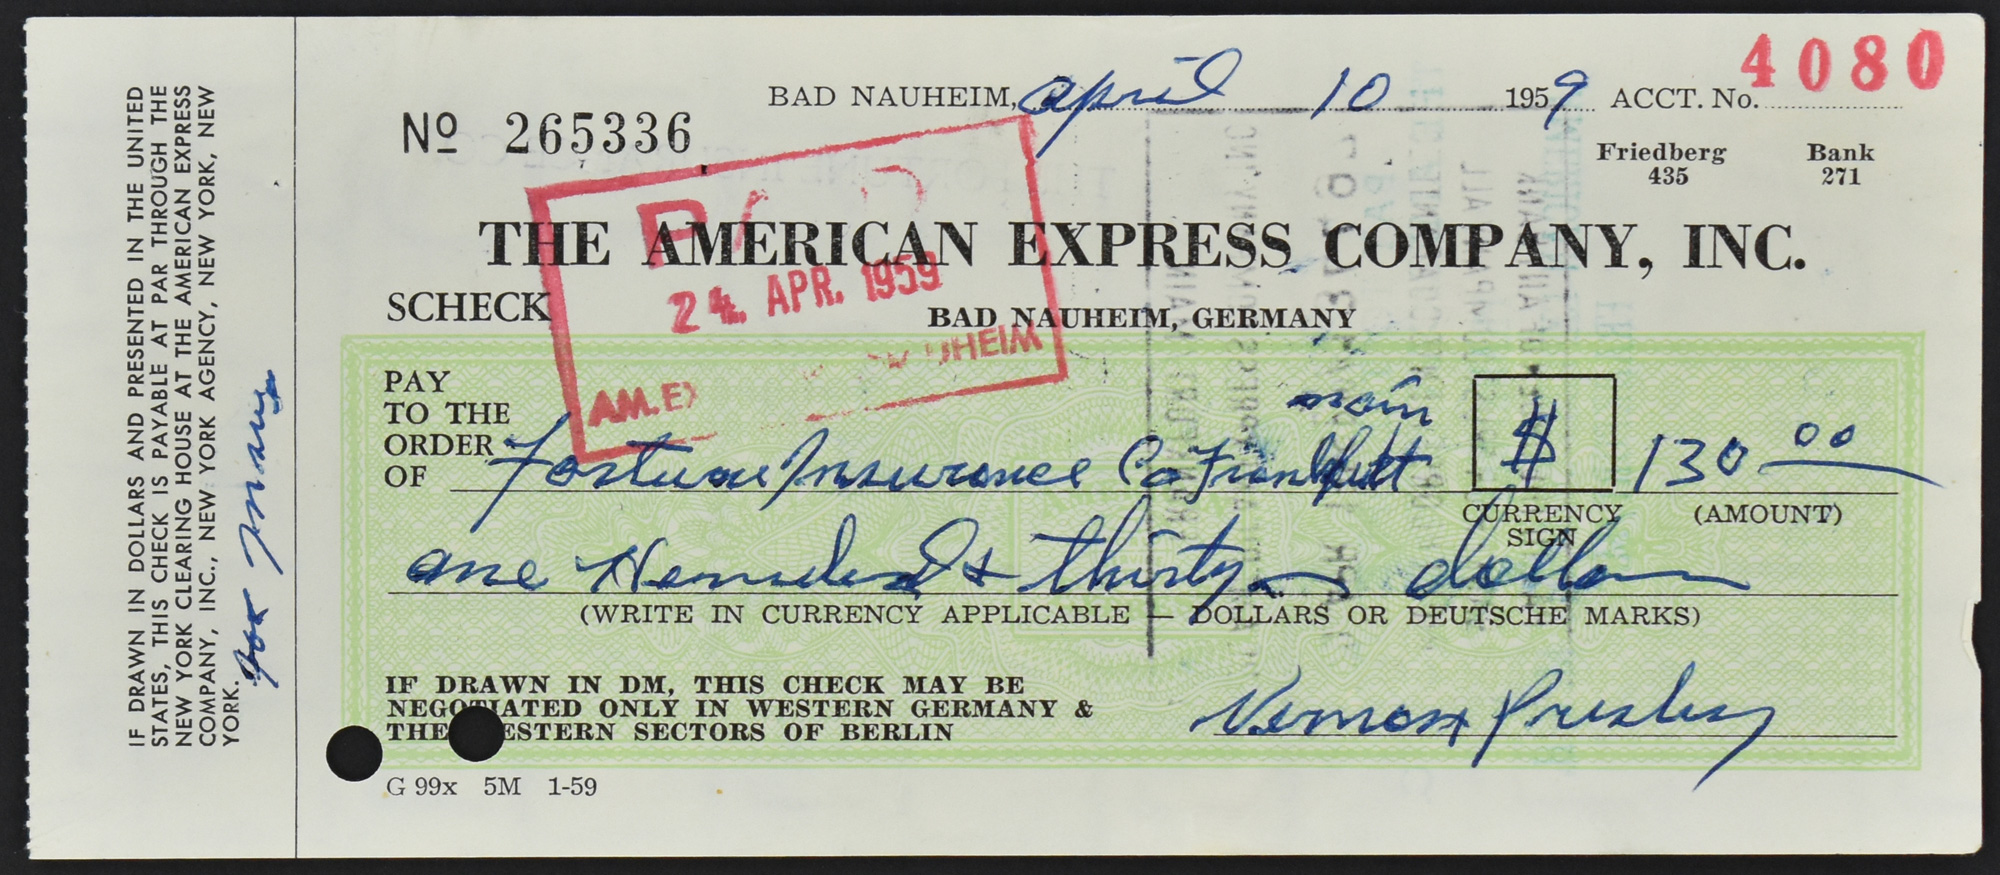 4080
BAD NAUHEIM, april 10 1959 ACCT. No.
No 265336
Friedberg Bank
435 271
THE AMERICAN EXPRESS COMPANY, INC.
24. APR. 1959
SCHECK
BAD NAUHEIM, GERMANY
AM.EX
PAY
TO THE
ORDER
OF
main
Fortune Insurance Co Frankfutt $ 130 00
CURRENCY
SIGN
(AMOUNT)
one Hundred & thirty dollars
(WRITE IN CURRENCY APPLICABLE — DOLLARS OR DEUTSCHE MARKS)
IF DRAWN IN DM, THIS CHECK MAY BE
NEGOTIATED ONLY IN WESTERN GERMANY &
THE WESTERN SECTORS OF BERLIN
Vernon Presley
G 99x 5M 1-59
IF DRAWN IN DOLLARS AND PRESENTED IN THE UNITED
STATES, THIS CHECK IS PAYABLE AT PAR THROUGH THE
NEW YORK CLEARING HOUSE AT THE AMERICAN EXPRESS
COMPANY, INC., NEW YORK AGENCY, NEW YORK, NEW
YORK.